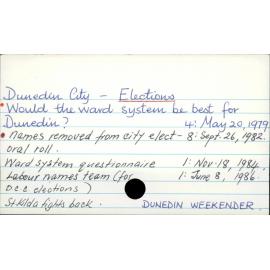 Dunedin City - Elections
• Would the ward system be best for
Dunedin? 4: May 20, 1979
• Names removed from city elect- 8: Sept. 26, 1982.
oral roll.
Ward system questionnaire 1: Nov. 18, 1984.
Labour names team (for 1: June 8, 1986.
D.C.C elections)
St Kilda fights back. DUNEDIN WEEKENDER.